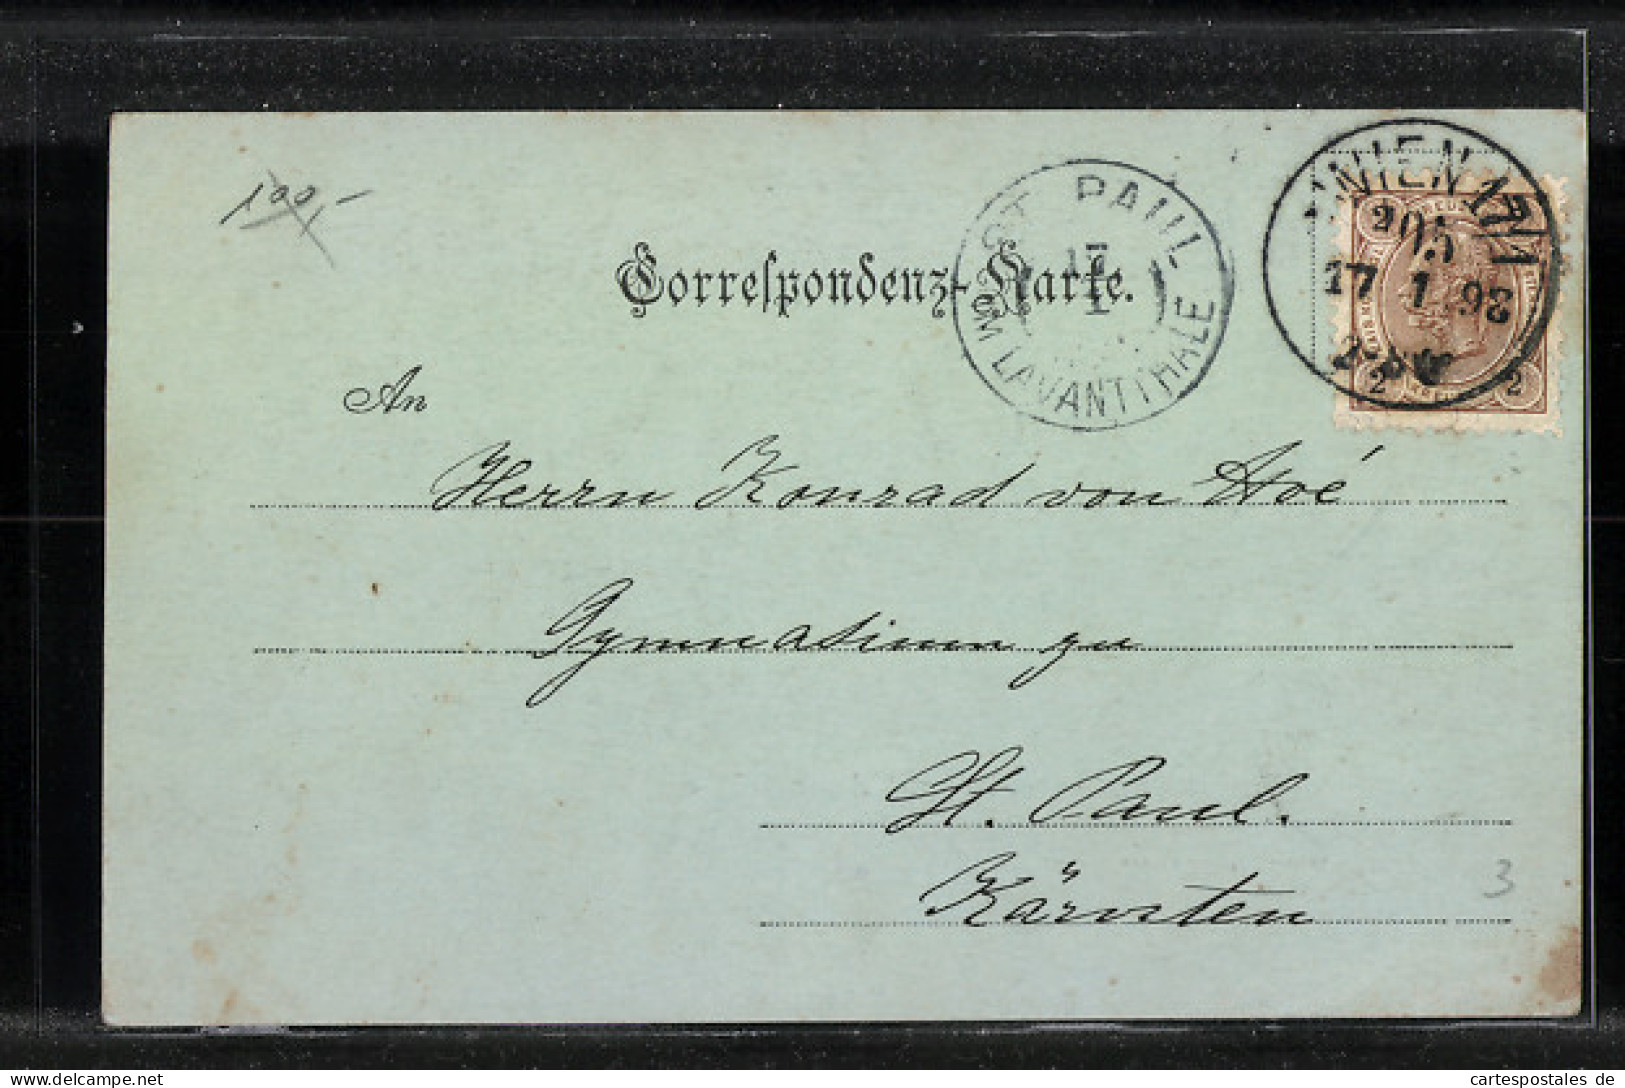 100,-
Correspondenz-Karte.
ST. PAUL
17
1
IM LAVANTTHALE
WIEN 17/1
205
17 1 98
2
2
An
Herrn Konrad von Hoé
Gymnasium zu
St. Paul.
Kärnten
3
Delcampe.net
cartespostales de